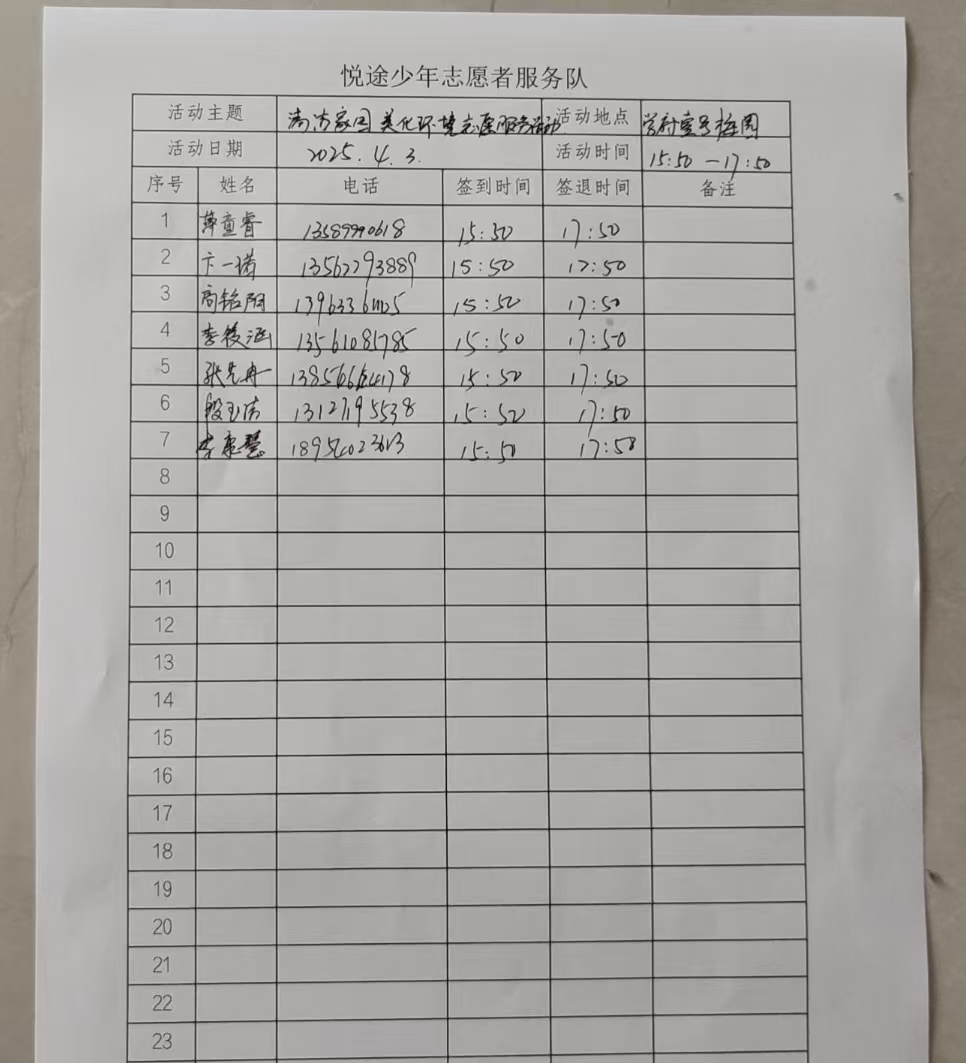 悦途少年志愿者服务队
活动主题 清洁家园 美化环境志愿服务活动 活动地点 学府壹号梅园
活动日期 2025.4.3. 活动时间 15:50-17:50
序号 姓名 电话 签到时间 签退时间 备注
1 薄童睿 13589990618 15:50 17:50
2 卞一诺 13562293889 15:50 17:50
3 高铭阳 15:50 17:50
4 李筱涵 13561081785 15:50 17:50
5 张先冉 15:50 17:50
6 段玉洁 13127195538 15:50 17:50
7 15:50 17:50
8
9
10
11
12
13
14
15
16
17
18
19
20
21
22
23